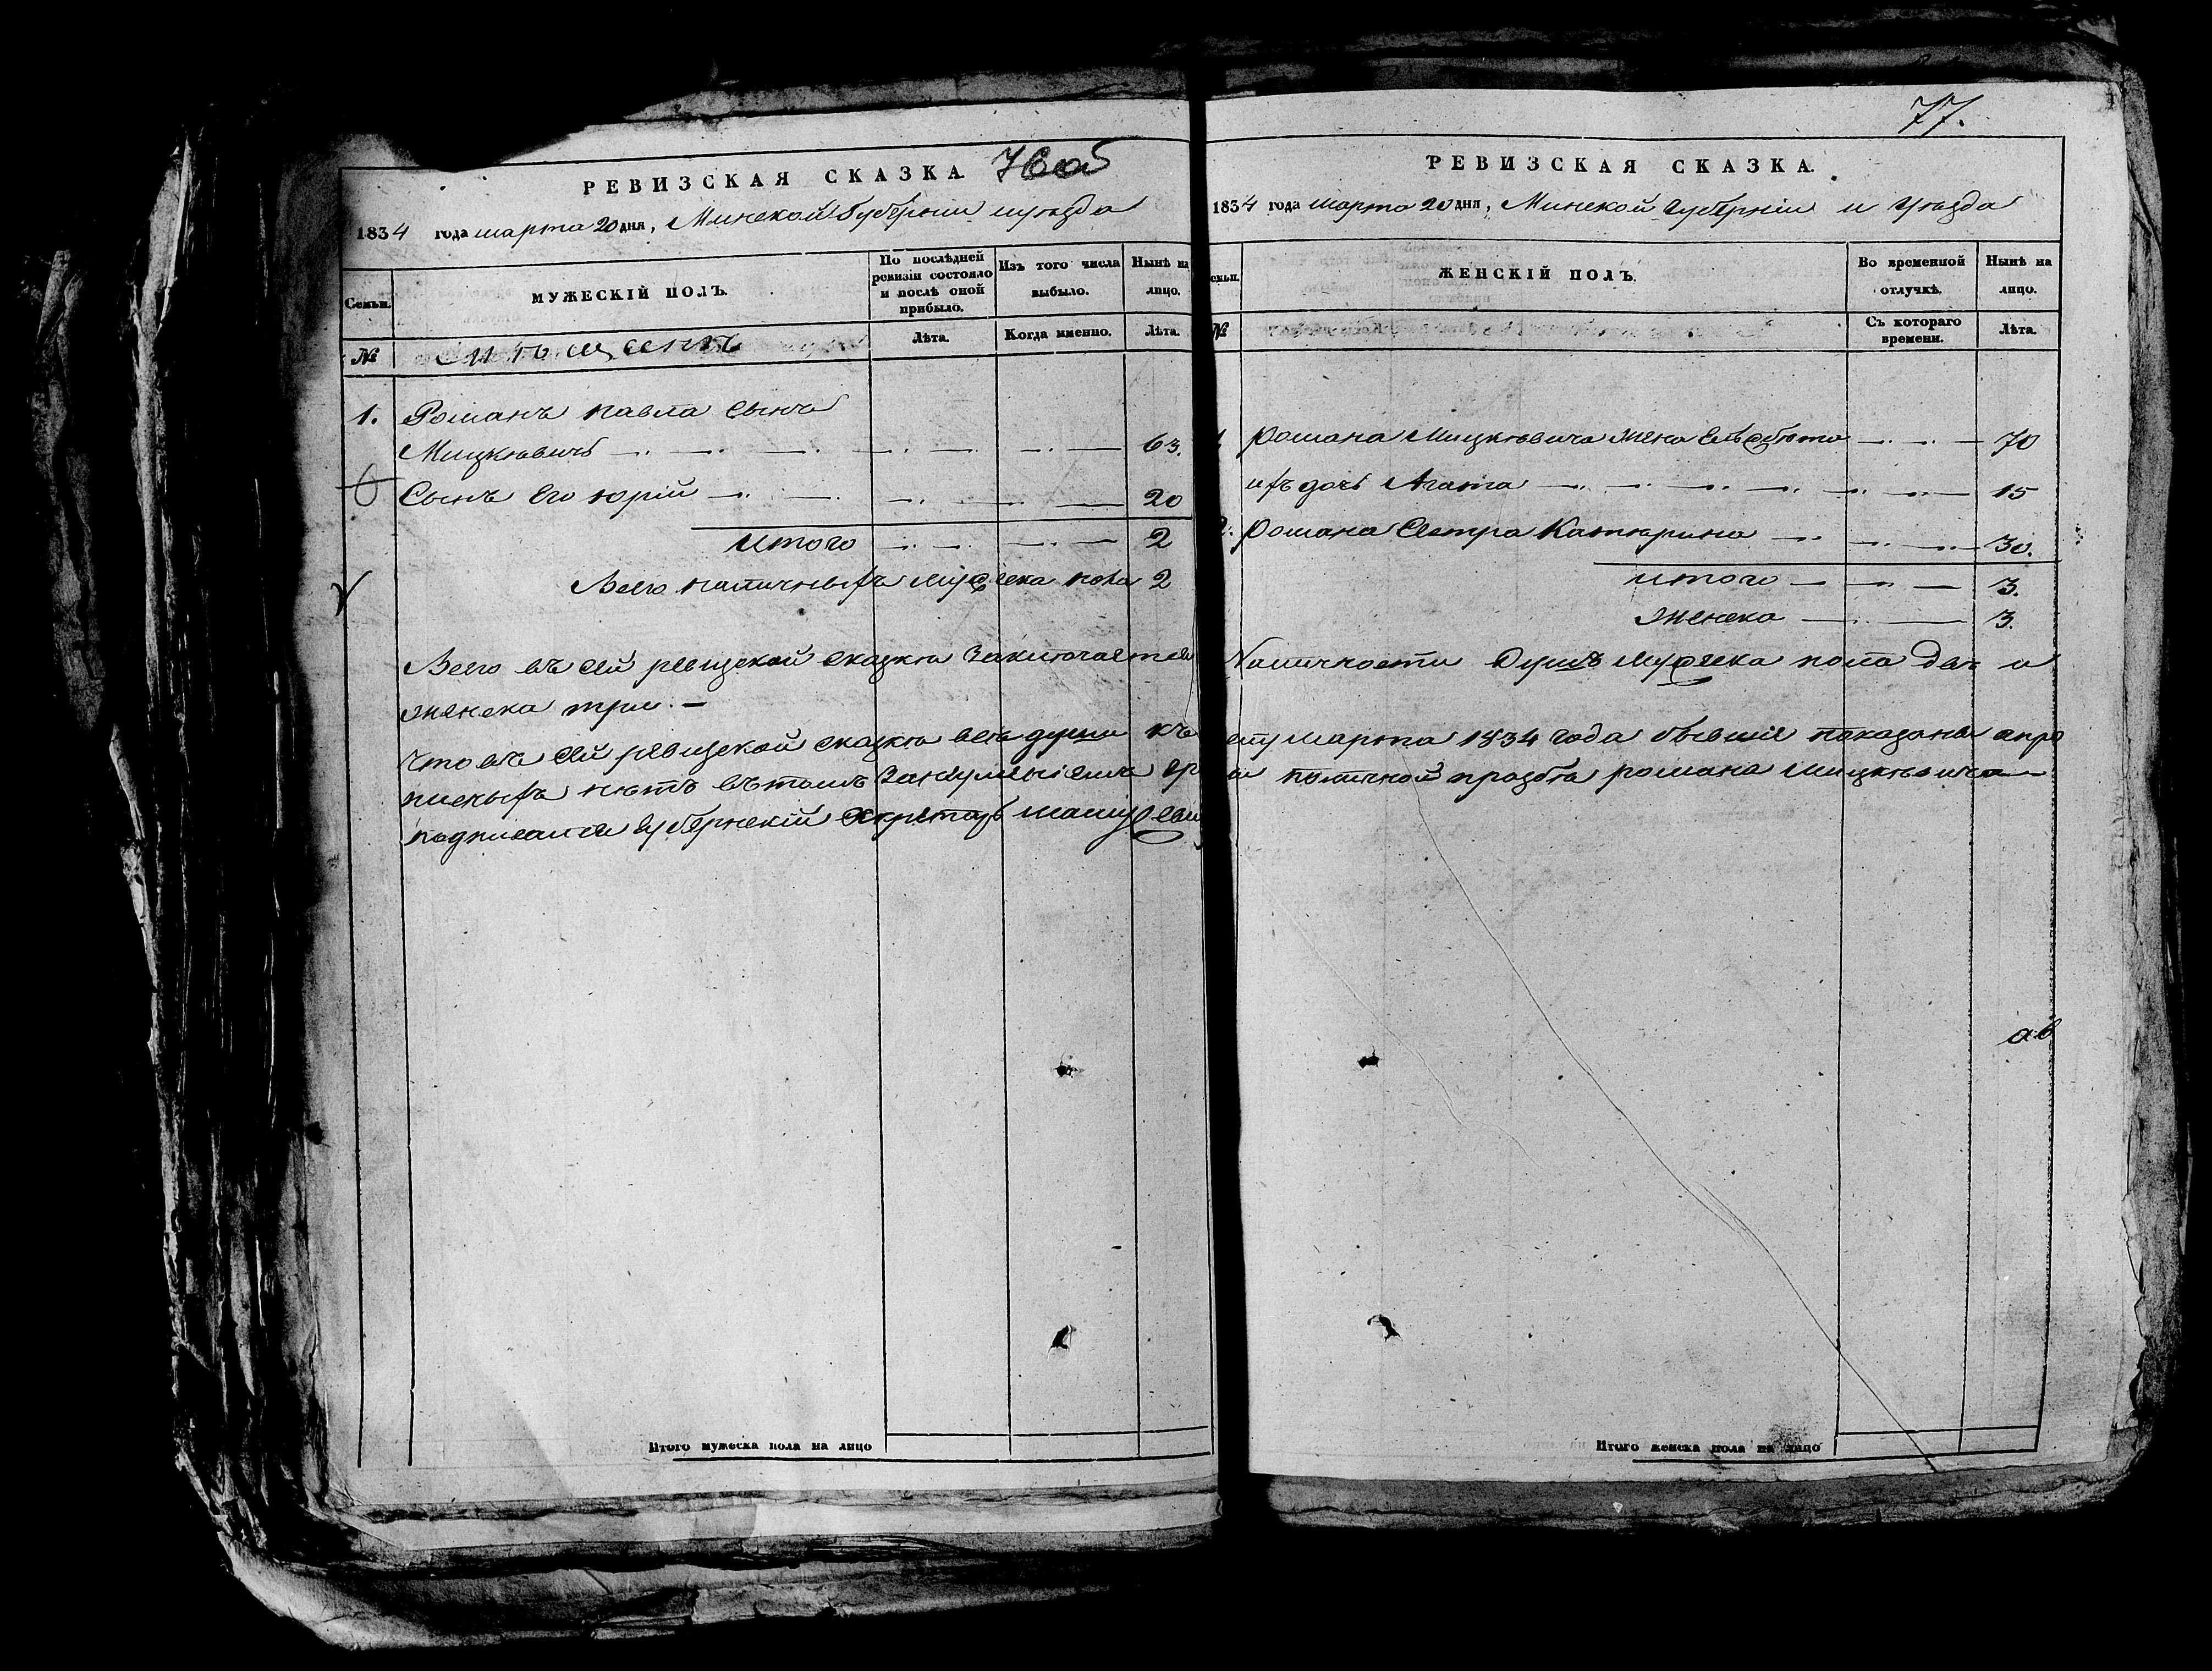 РЕВИЗСКАЯ СКАЗКА.
1834 года марта 20 дня, Минской Губернiи и уѣзда
Семьи.
МУЖЕСКIЙ ПОЛЪ.
По послѣдней ревизiи состояло и послѣ оной прибыло.
Изъ того числа выбыло.
Нынѣ на лицо.
№
Мѣщанъ
Лѣта.
Когда именно.
Лѣта.
1. Романъ Павла сынъ
Мицкѣвичъ 63.
Сынъ Его Юрiй 20
Итого 2
Всего наличныхъ мужеска пола 2
Всего въ сей ревизской сказкѣ заключается
женска три. —
Что въ сей ревизской сказкѣ всѣ души къ
писныхъ нѣтъ въ томъ
подписался Губернскiй Секретарь
Итого мужеска пола на лицо
77.
РЕВИЗСКАЯ СКАЗКА.
1834 года марта 20 дня, Минской Губернiи и уѣзда
семьи.
ЖЕНСКIЙ ПОЛЪ.
Во временной отлучкѣ.
Нынѣ на лицо.
№
Съ котораго времени.
Лѣта.
Романа Мицкѣвича жена Елѣсбѣта 70
ихъ дочь Агата 15
2. Романа Сестра Катѣрина 30.
итого 3.
женска 3.
Наличности Душъ мужеска пола двѣ и
марта 1834 года бывшiе показаны а про
по личной прозбѣ романа мицкѣвича
Итого женска пола на лицо